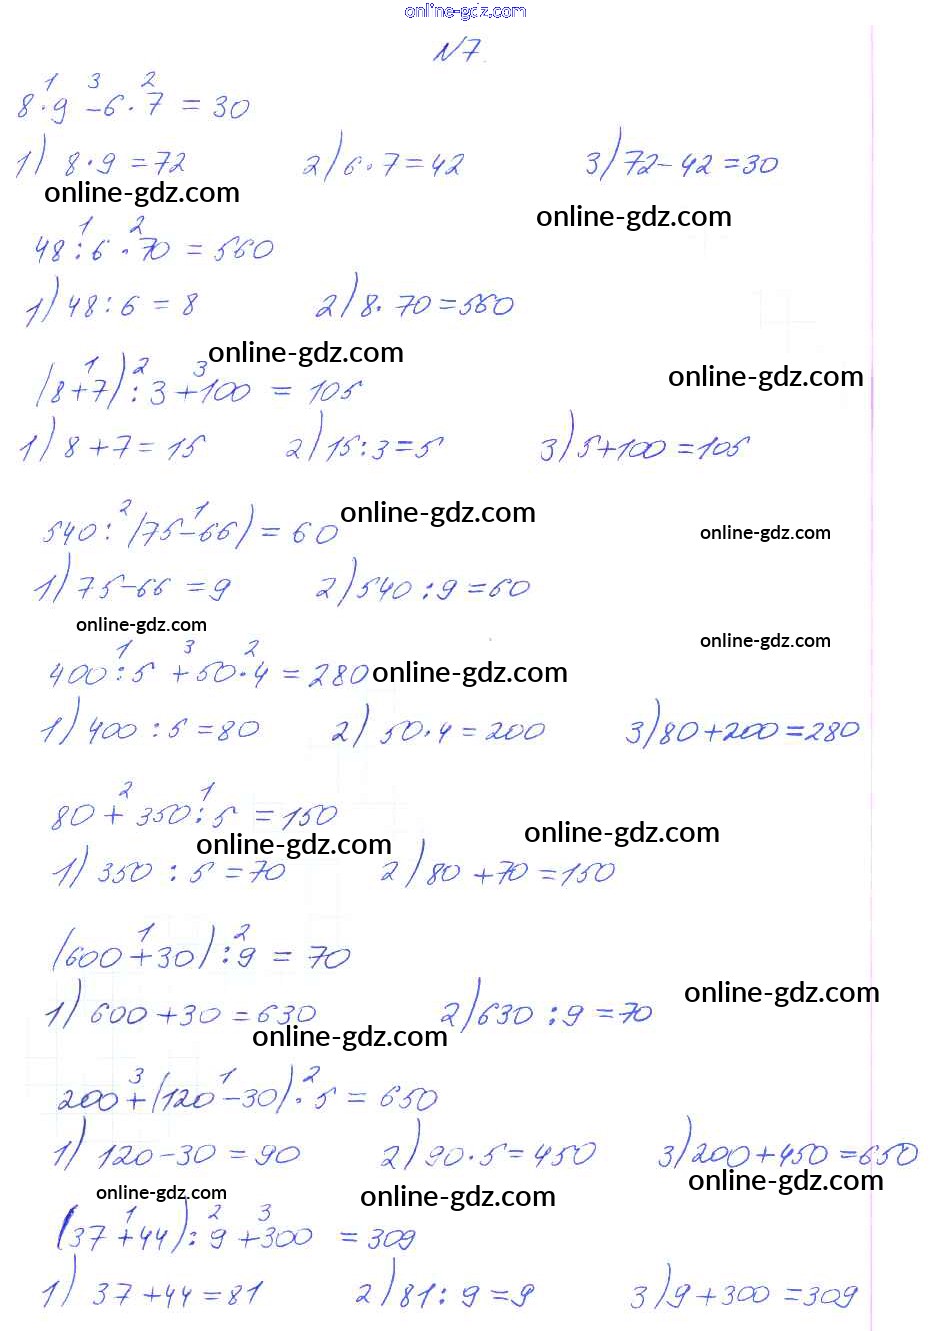 online-gdz.com
№7.
1 3 2
8·9 -6·7 = 30
1) 8·9 =72 2) 6·7=42 3) 72-42=30
online-gdz.com
online-gdz.com
1 2
48:6·70 = 560
1) 48:6 = 8 2) 8·70=560
online-gdz.com
online-gdz.com
1 2 3
(8+7):3+100 = 105
1) 8+7= 15 2) 15:3=5 3) 5+100=105
online-gdz.com
2 1
540:(75-66)=60
online-gdz.com
1) 75-66 =9 2) 540:9=60
online-gdz.com
online-gdz.com
1 3 2
400:5 +50·4 = 280
online-gdz.com
1) 400 :5 =80 2) 50·4 = 200 3) 80+200=280
2 1
80+ 350:5 =150
online-gdz.com
online-gdz.com
1) 350 : 5 =70 2) 80 +70 =150
1 2
(600+30):9 = 70
online-gdz.com
1) 600+30 =630 2) 630 :9 =70
online-gdz.com
3 1 2
200+(120-30)·5 = 650
1) 120-30 =90 2) 90·5=450 3) 200+450=650
online-gdz.com
online-gdz.com
online-gdz.com
1 2 3
(37+44):9+300 =309
1) 37+44=81 2) 81:9=9 3) 9+300 =309